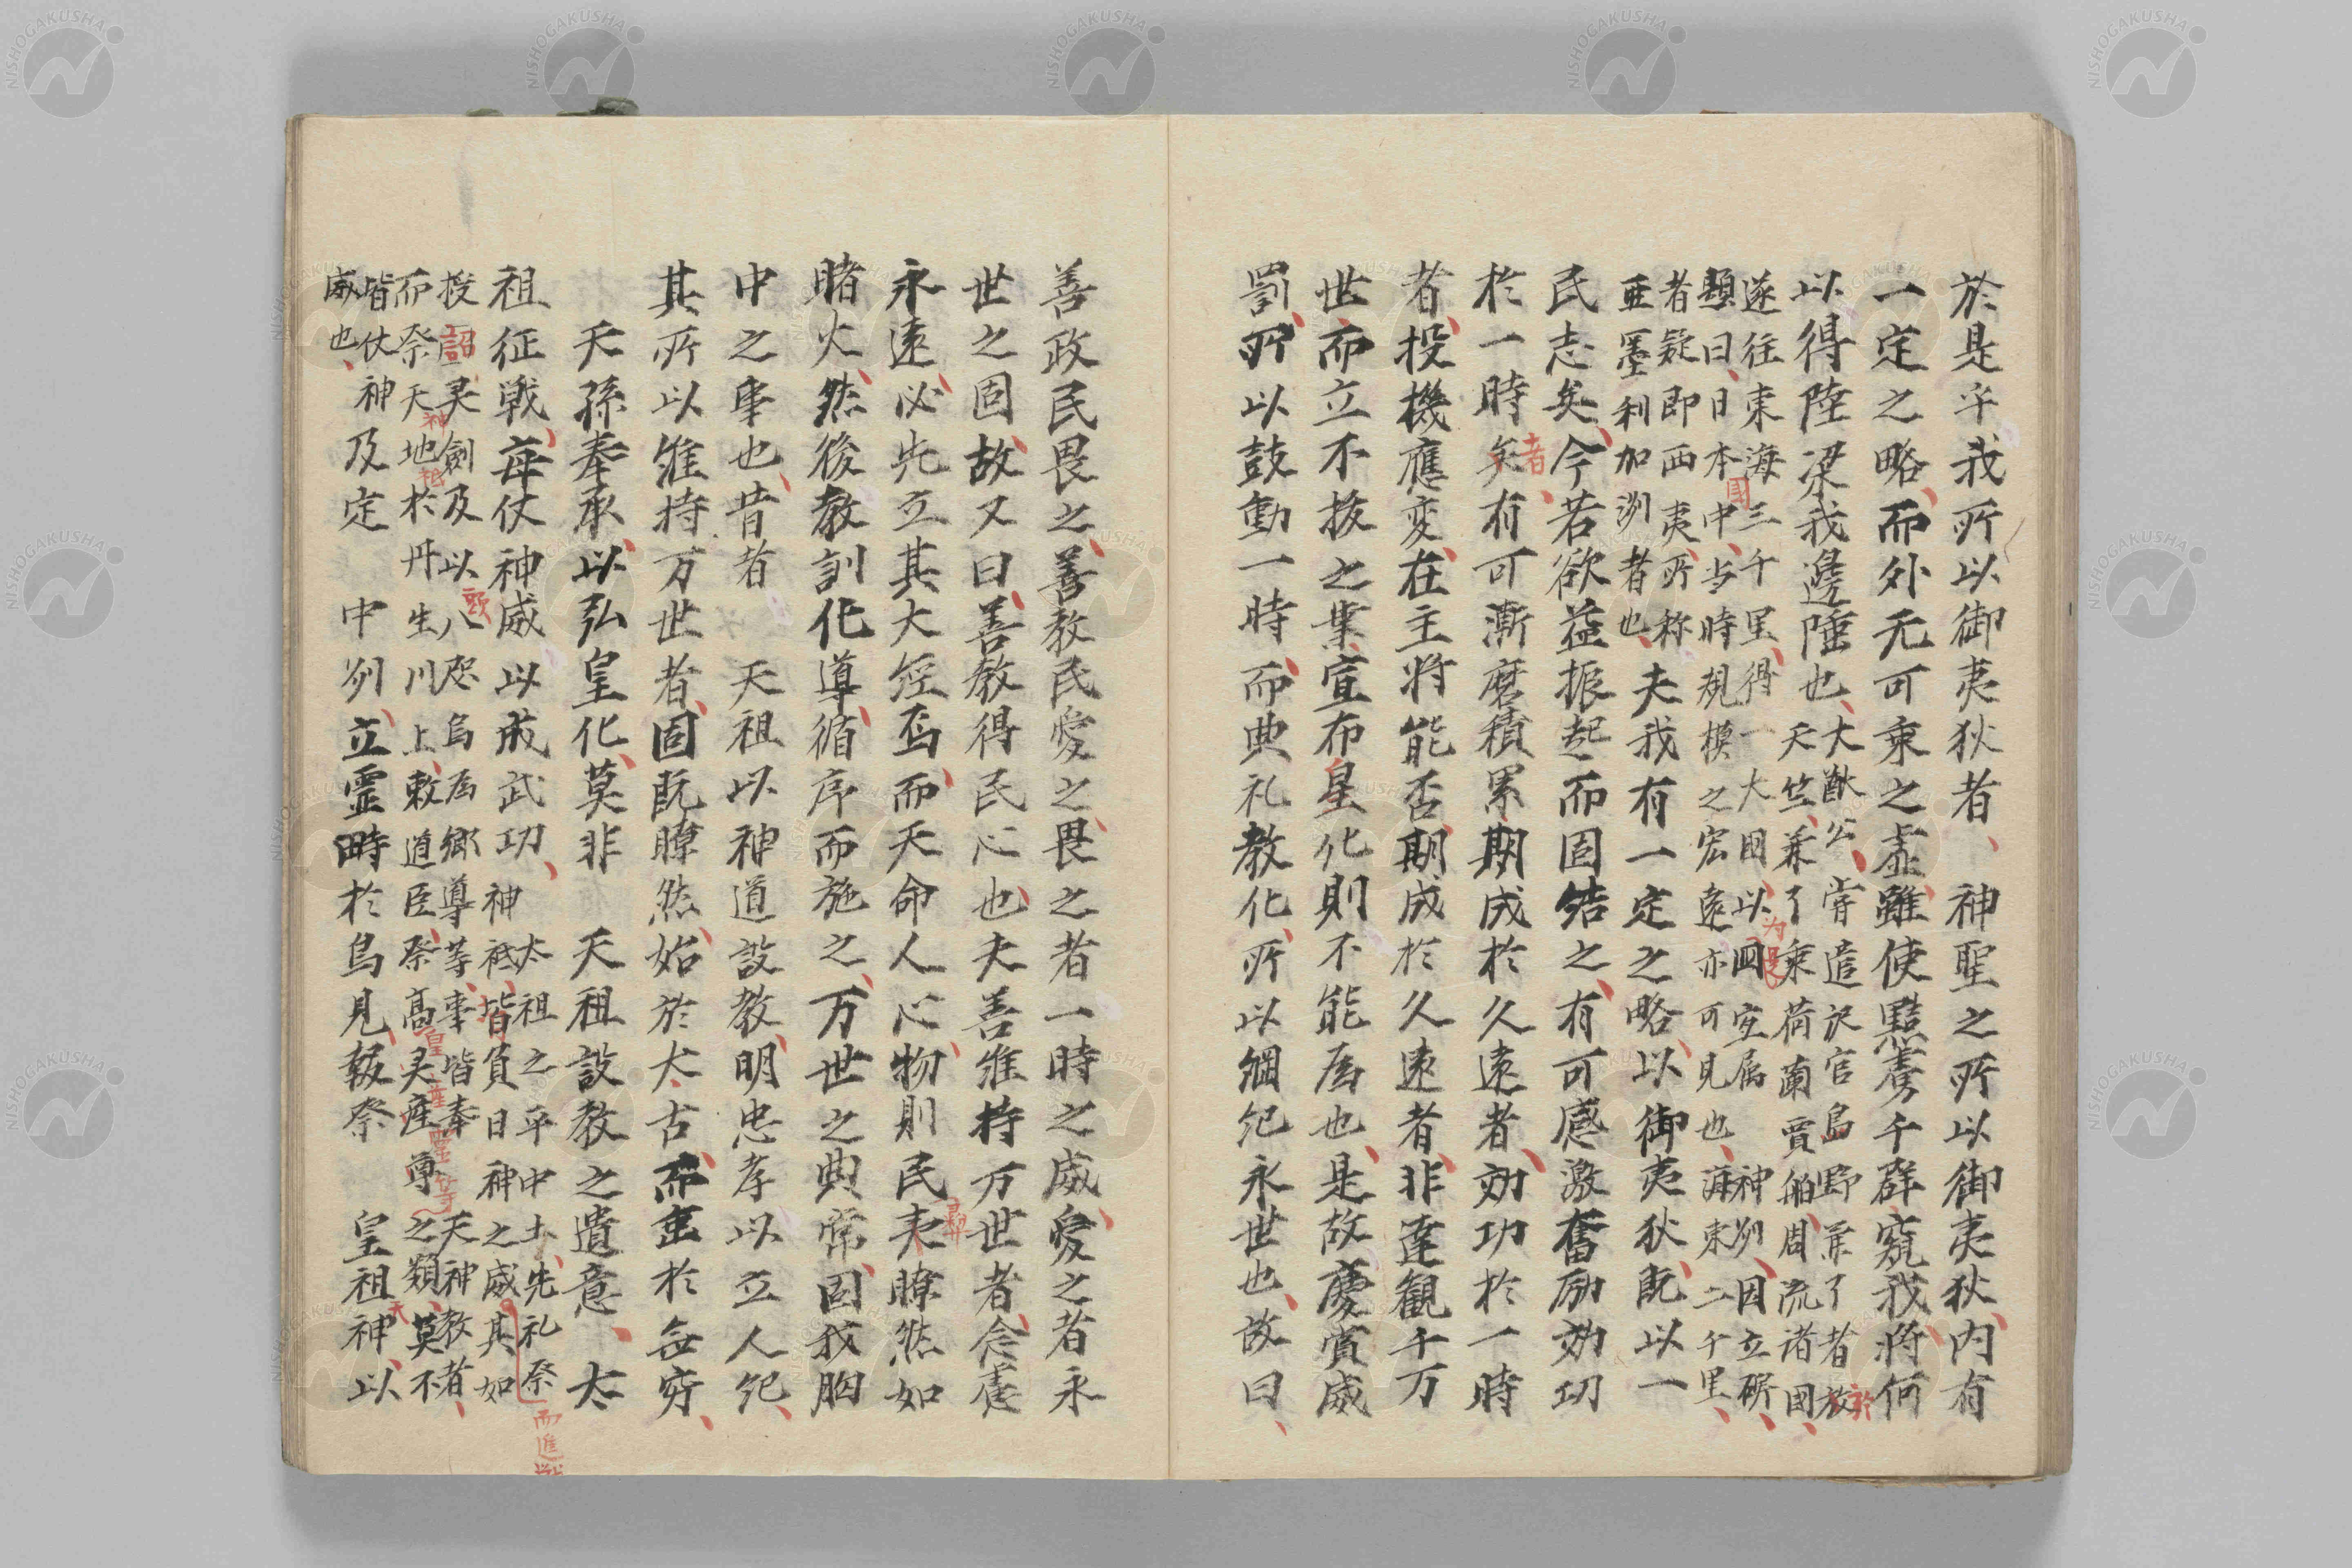 於是乎我所以御夷狄者、神聖之所以御夷狄、内有
一定之略、而外无可乘之虚、雖使黠虜千群窺我、將何
以得陸梁我邊陲也、
大猷公、甞遣译官島野兼了者於
天竺、兼了乘荷蘭賈舶、周流諸國、
遂往東海三千里、得一大国、以为是宜属神州、因立碑、
題曰、日本国中、当時規模之宏遠亦可見也、海東二千里、
者疑即西夷所称
亜墨利加洲者也、
夫我有一定之略、以御夷狄、既以一
民志矣、今若欲益振起而固結之、有可感激奮励効功
於一時者、有可漸磨積累、期成於久遠者、効功於一時
者、投機應変、在主将能否、期成於久遠者、非達観千万
世、而立不拔之業、宣布皇化、則不能為也、是故慶賞威
罰、所以鼓動一時、而典礼教化、所以綱紀永世也、故曰、
善政民畏之、善教民愛之、畏之者一時之威、愛之者永
世之固、故又曰、善教得民心也、夫善維持万世者、念慮
永遠、必先立其大經焉、而天命人心、物則民彛、瞭然如
睹火、然後教訓化導、循序而施之、万世之典常、固我胸
中之事也、昔者　天祖以神道設教、明忠孝以立人紀、
其所以維持万世者、固既瞭然、始於太古、而垂於無穷、
天孫奉承、以弘皇化、莫非　天祖設教之遺意、太
祖征戦、每仗神威以成武功、
太祖之平中土、先礼祭
神祇、皆負日神之威、其如
而進戦
授詔灵劍及以頭八咫烏為郷導等、事皆奉天神教者、
而祭天神地祇於丹生川上、敕道臣、祭高皇産灵尊之類、莫不
皆仗神
威也、
及定　中州、立霊畤於鳥見、報祭　皇祖天神、以